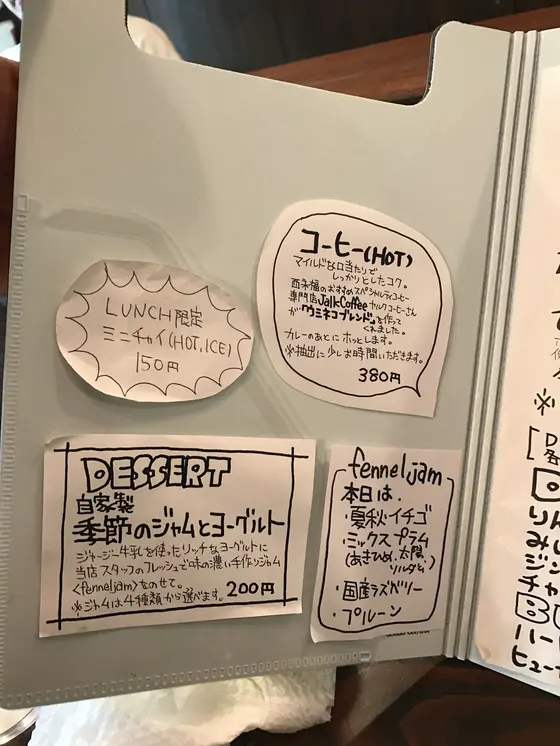 LUNCH限定
ミニチャイ(HOT,ICE)
150円
コーヒー(HOT)
マイルドな口当たりで
しっかりとしたコク。
西永福のおすすめスペシャルティコーヒー
専門店JalkCoffeeヤルクコーヒーさん
が「ウミネコブレンド」を作って
くれました。
カレーのあとにホッとします。
※抽出に少しお時間いただきます。
380円
DESSERT
自家製
季節のジャムとヨーグルト
ジャージー牛乳を使ったリッチなヨーグルトに
当店スタッフのフレッシュで味の濃い手作りジャム
<fenneljam>をのせて。
※ジャムは4種類から選べます。 200円
fenneljam
本日は、
・夏秋イチゴ
・ミックスプラム
(あきひめ、太陽、
ソルダム)
・国産ラズベリー
・プルーン
※
りん
みし
ジン
チャ
ハー
ヒュー